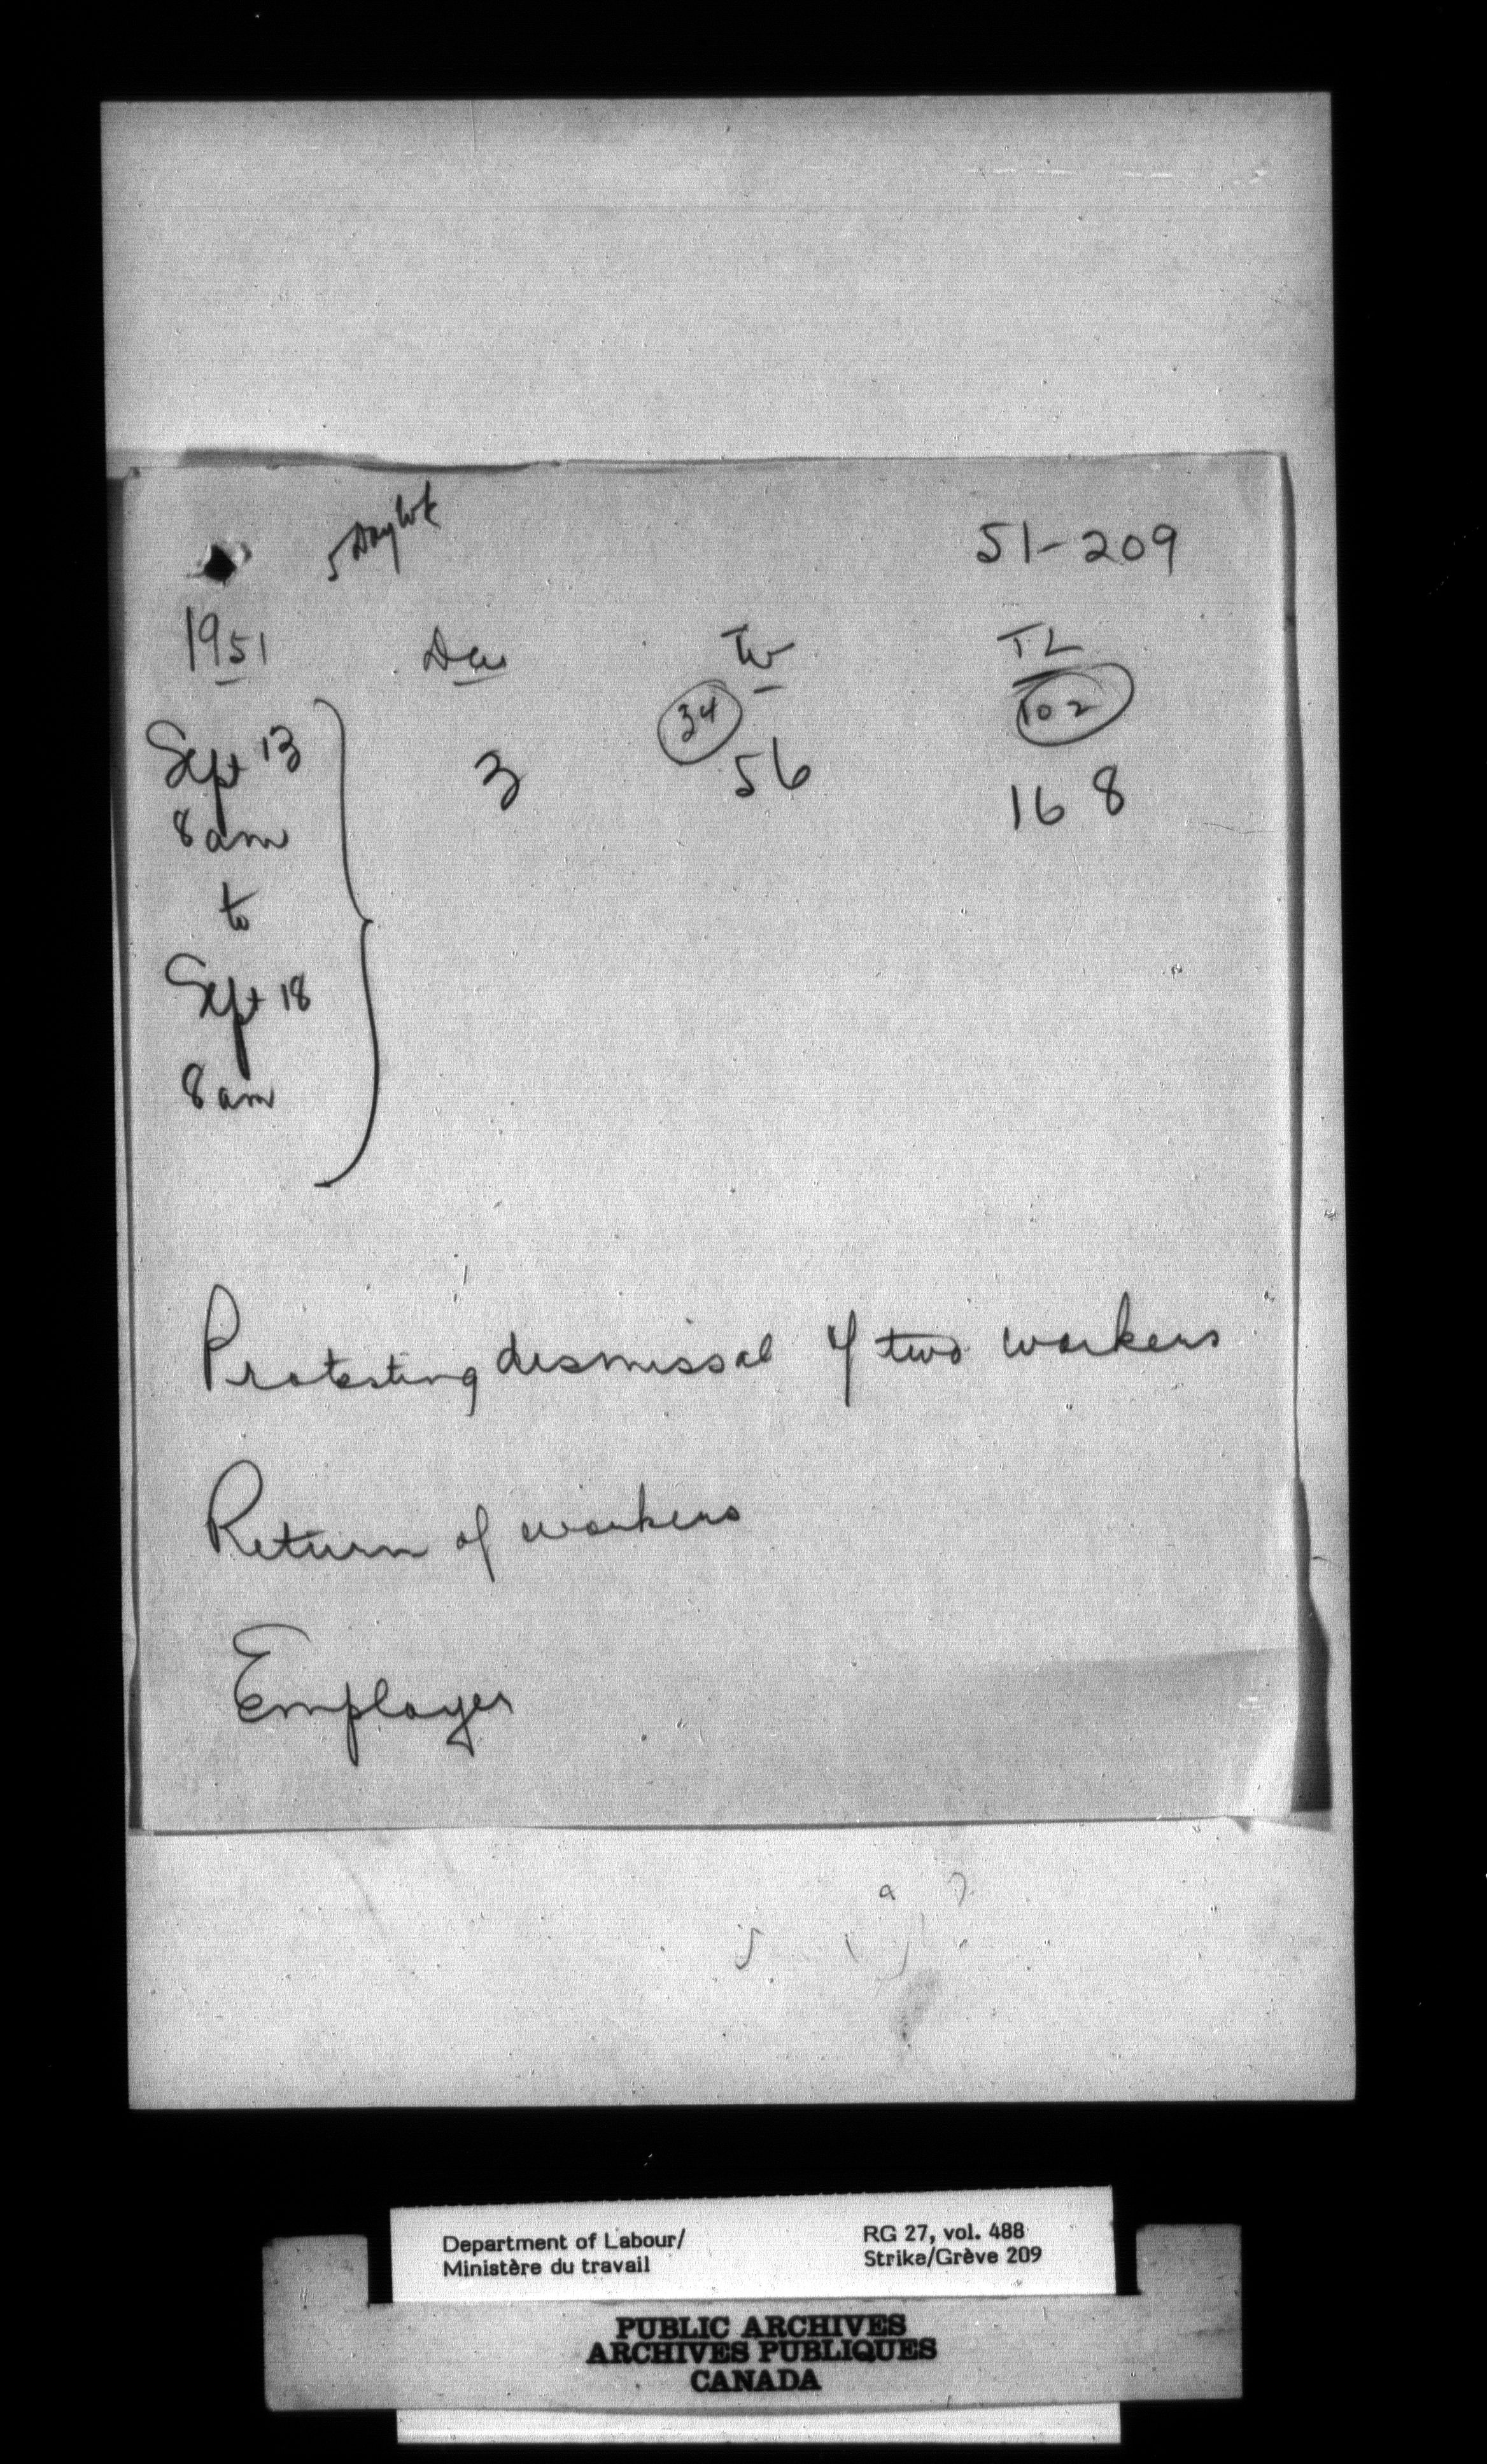 5 Day Wk
51-209
1951 Du TW TL
34 102
Sept 13 3 56 168
8 am
to
Sept 18
8 am
Protesting dismissal of two workers
Return of workers
Employer
Department of Labour/ RG 27, vol. 488
Ministère du travail Strike/Grève 209
PUBLIC ARCHIVES
ARCHIVES PUBLIQUES
CANADA